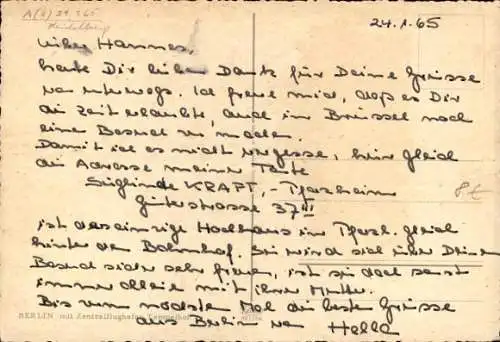 A(k) 24.1.65
Heidelberg
24.1.65
Lieber Hannes,
habe Dir lieben Dank für Deine Grüsse
von unterwegs. Ich freue mich, daß es Dir
die Zeit erlaubte, auch in Brüssel noch
einen Besuch zu machen.
Damit ich es nicht vergesse, hier gleich
die Adresse meiner Tante
Sieglinde KRAFT, - Pforzheim
Güterstrasse 37 III
8 €
ist das einzige Hochhaus in Pforzh. gleich
hinter dem Bahnhof. Sie wird sich über Deinen
Besuch sicher sehr freuen, ist sie doch sonst
immer allein mit ihrer Mutter.
BERLIN mit Zentralflughafen Tempelhof
Bis zum nächsten Mal die besten Grüsse
aus Berlin von Hella